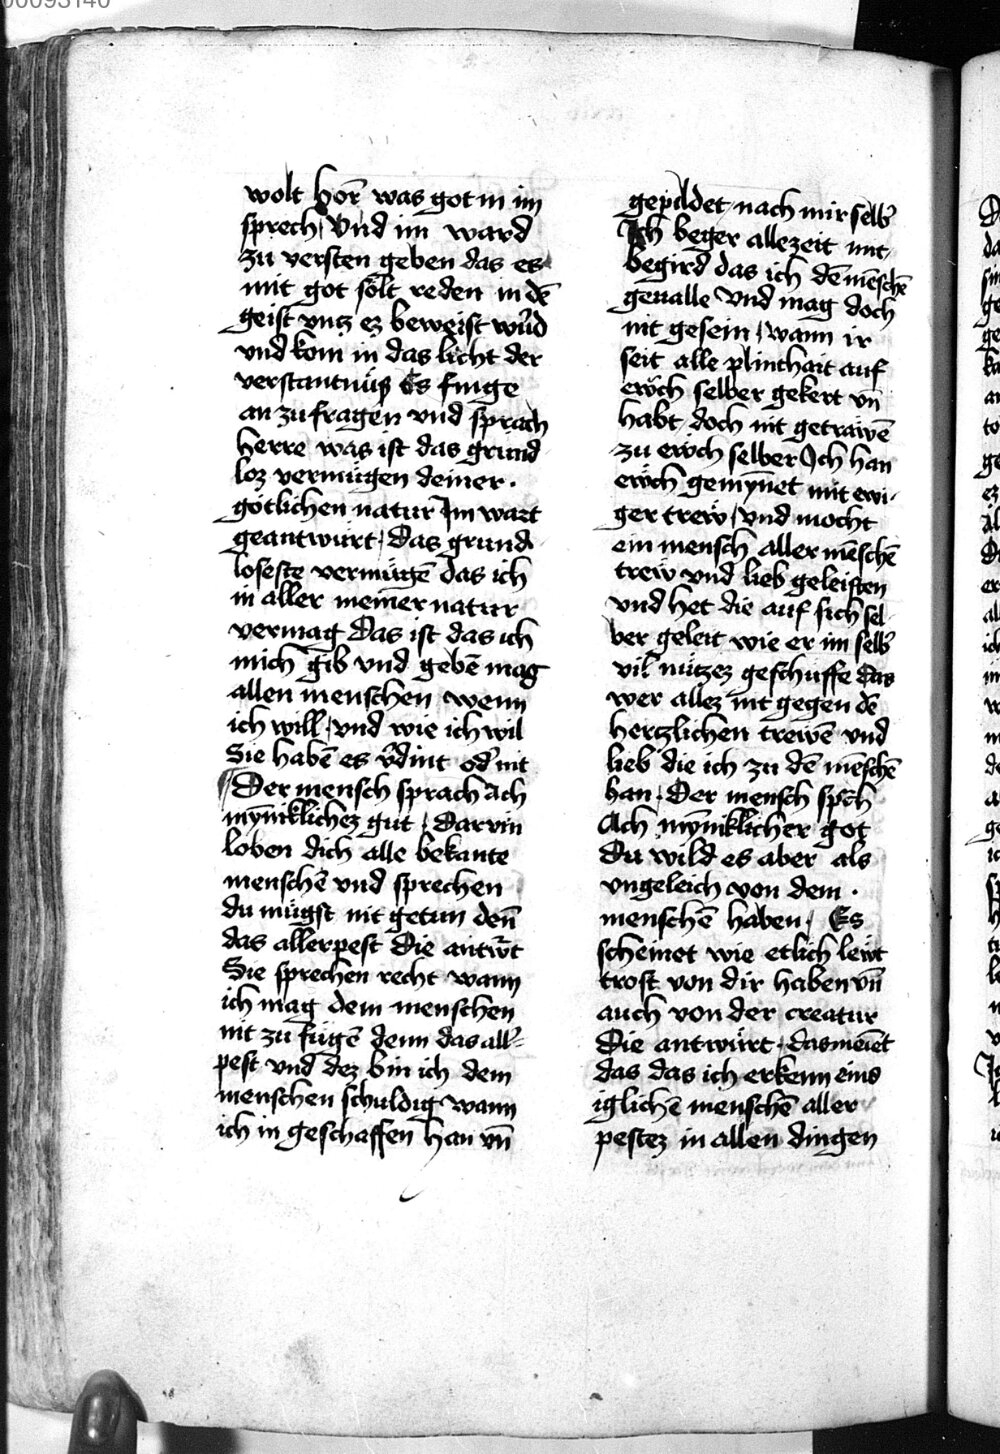 wolt hör̄ was got in im
sprech / Vnd im ward
zu versten geben das es
mit got sölt reden in dē
geist vntz ez beweist wūrd
vnd kom in das licht der
verstantnüß Es finge
an zu fragen vnd sprach
herre was ist das grund
loz vermügen deiner ·
götlichen natur Im wart
geantwürt / Das grund
loseste vermügē das ich
in aller meiner natur
vermag Das ist das ich
mich gib vnd gebē mag
allen menschen wenn
ich will / vnd wie ich wil
Sie habē es v̄dint od' nit
Der mensch sprach Ach
mynniklichez gut / Darvm
loben dich alle bekante
menschē vnd sprechen
du mügst nit getun deñ
das allerpest Die antw̄rt
Sie sprechen recht wann
ich mag dem menschen
nit zu fügē denn das all'
pest vnd dez bin ich dem
menschen schuldig wann
ich in geschaffen han vñ
gepildet nach mir selb'
Ich beger allezeit mit
begird das ich dē mēschē
geualle Vnd mag doch
nit gesein / wann ir
seit alle plinthait auf
ewch selber gekert vñ
habt doch nit getrawē
zu ewch selber Ich han
ewch gemynnet mit ewi
ger trew / vnd mocht
ein mensch aller mēschē
trew vnd lieb geleisten
vnd het die auf sich sel
ber geleit wie er im selb'
vil nützez geschuffe das
wer allez nit gegen dē
hertzlichen trewē vnd
lieb die ich zu dē mēschē
han · Der mensch sp̄ch
Ach mynniklicher got
Du wild es aber als
vngeleich von dem ·
menschē haben / Es
scheinet wie etlich lewt
trost von dir haben vñ
auch von der creatur
Die antwürt · das meīet
das das ich erkenn eins
iglichē menschē aller
pestez in allen dingen